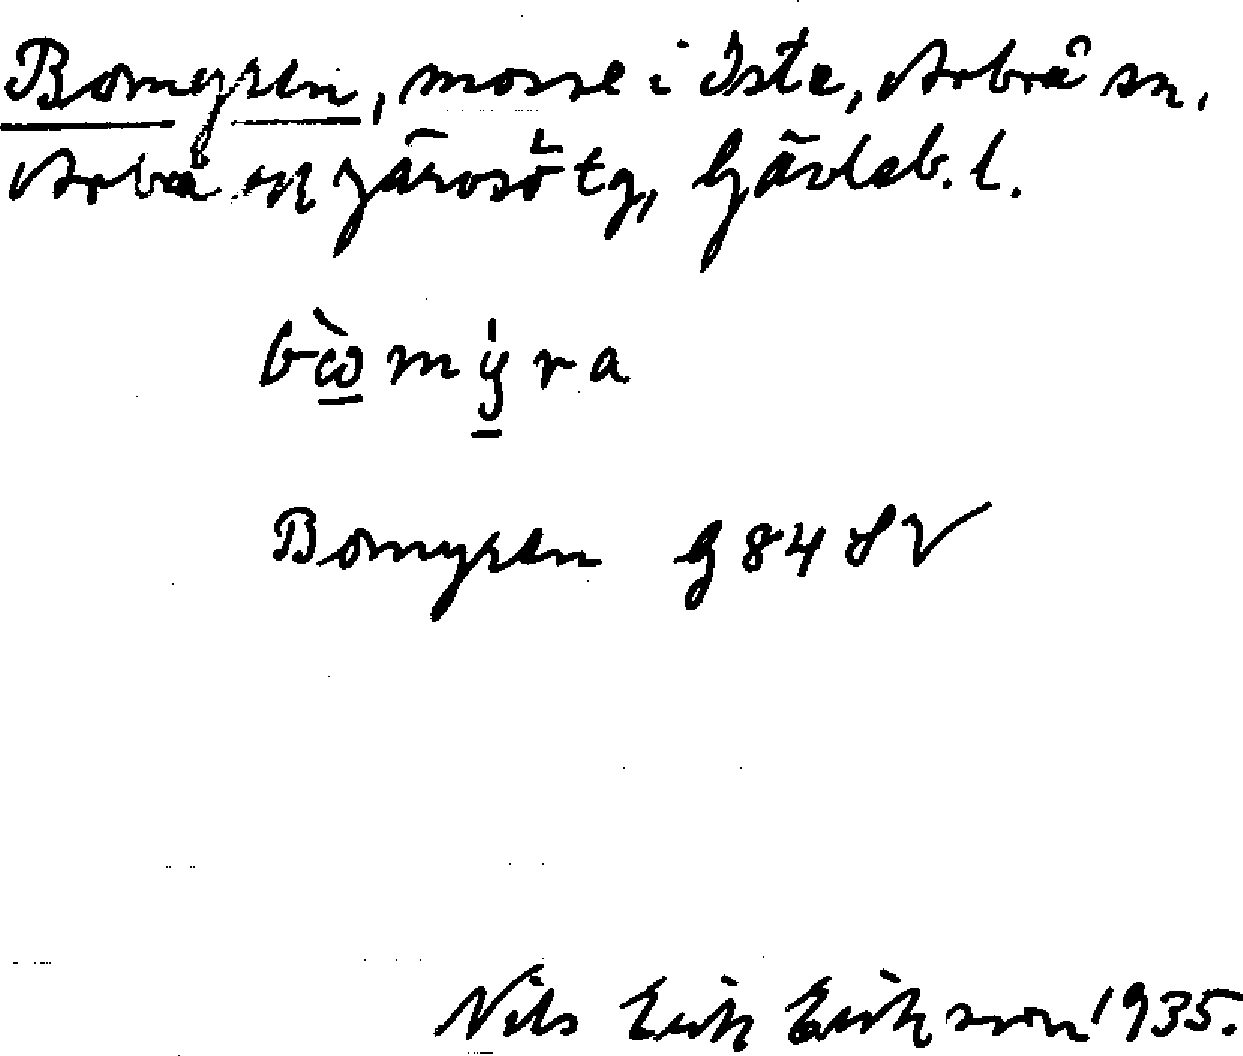 Bomyren, mosse i Iste, Arbrå sn,
Arbrå och Järvsö tg, Gävleb. l.
bòmýra
Bomyren G 84 SV
Nils Erik Eriksson 1935.